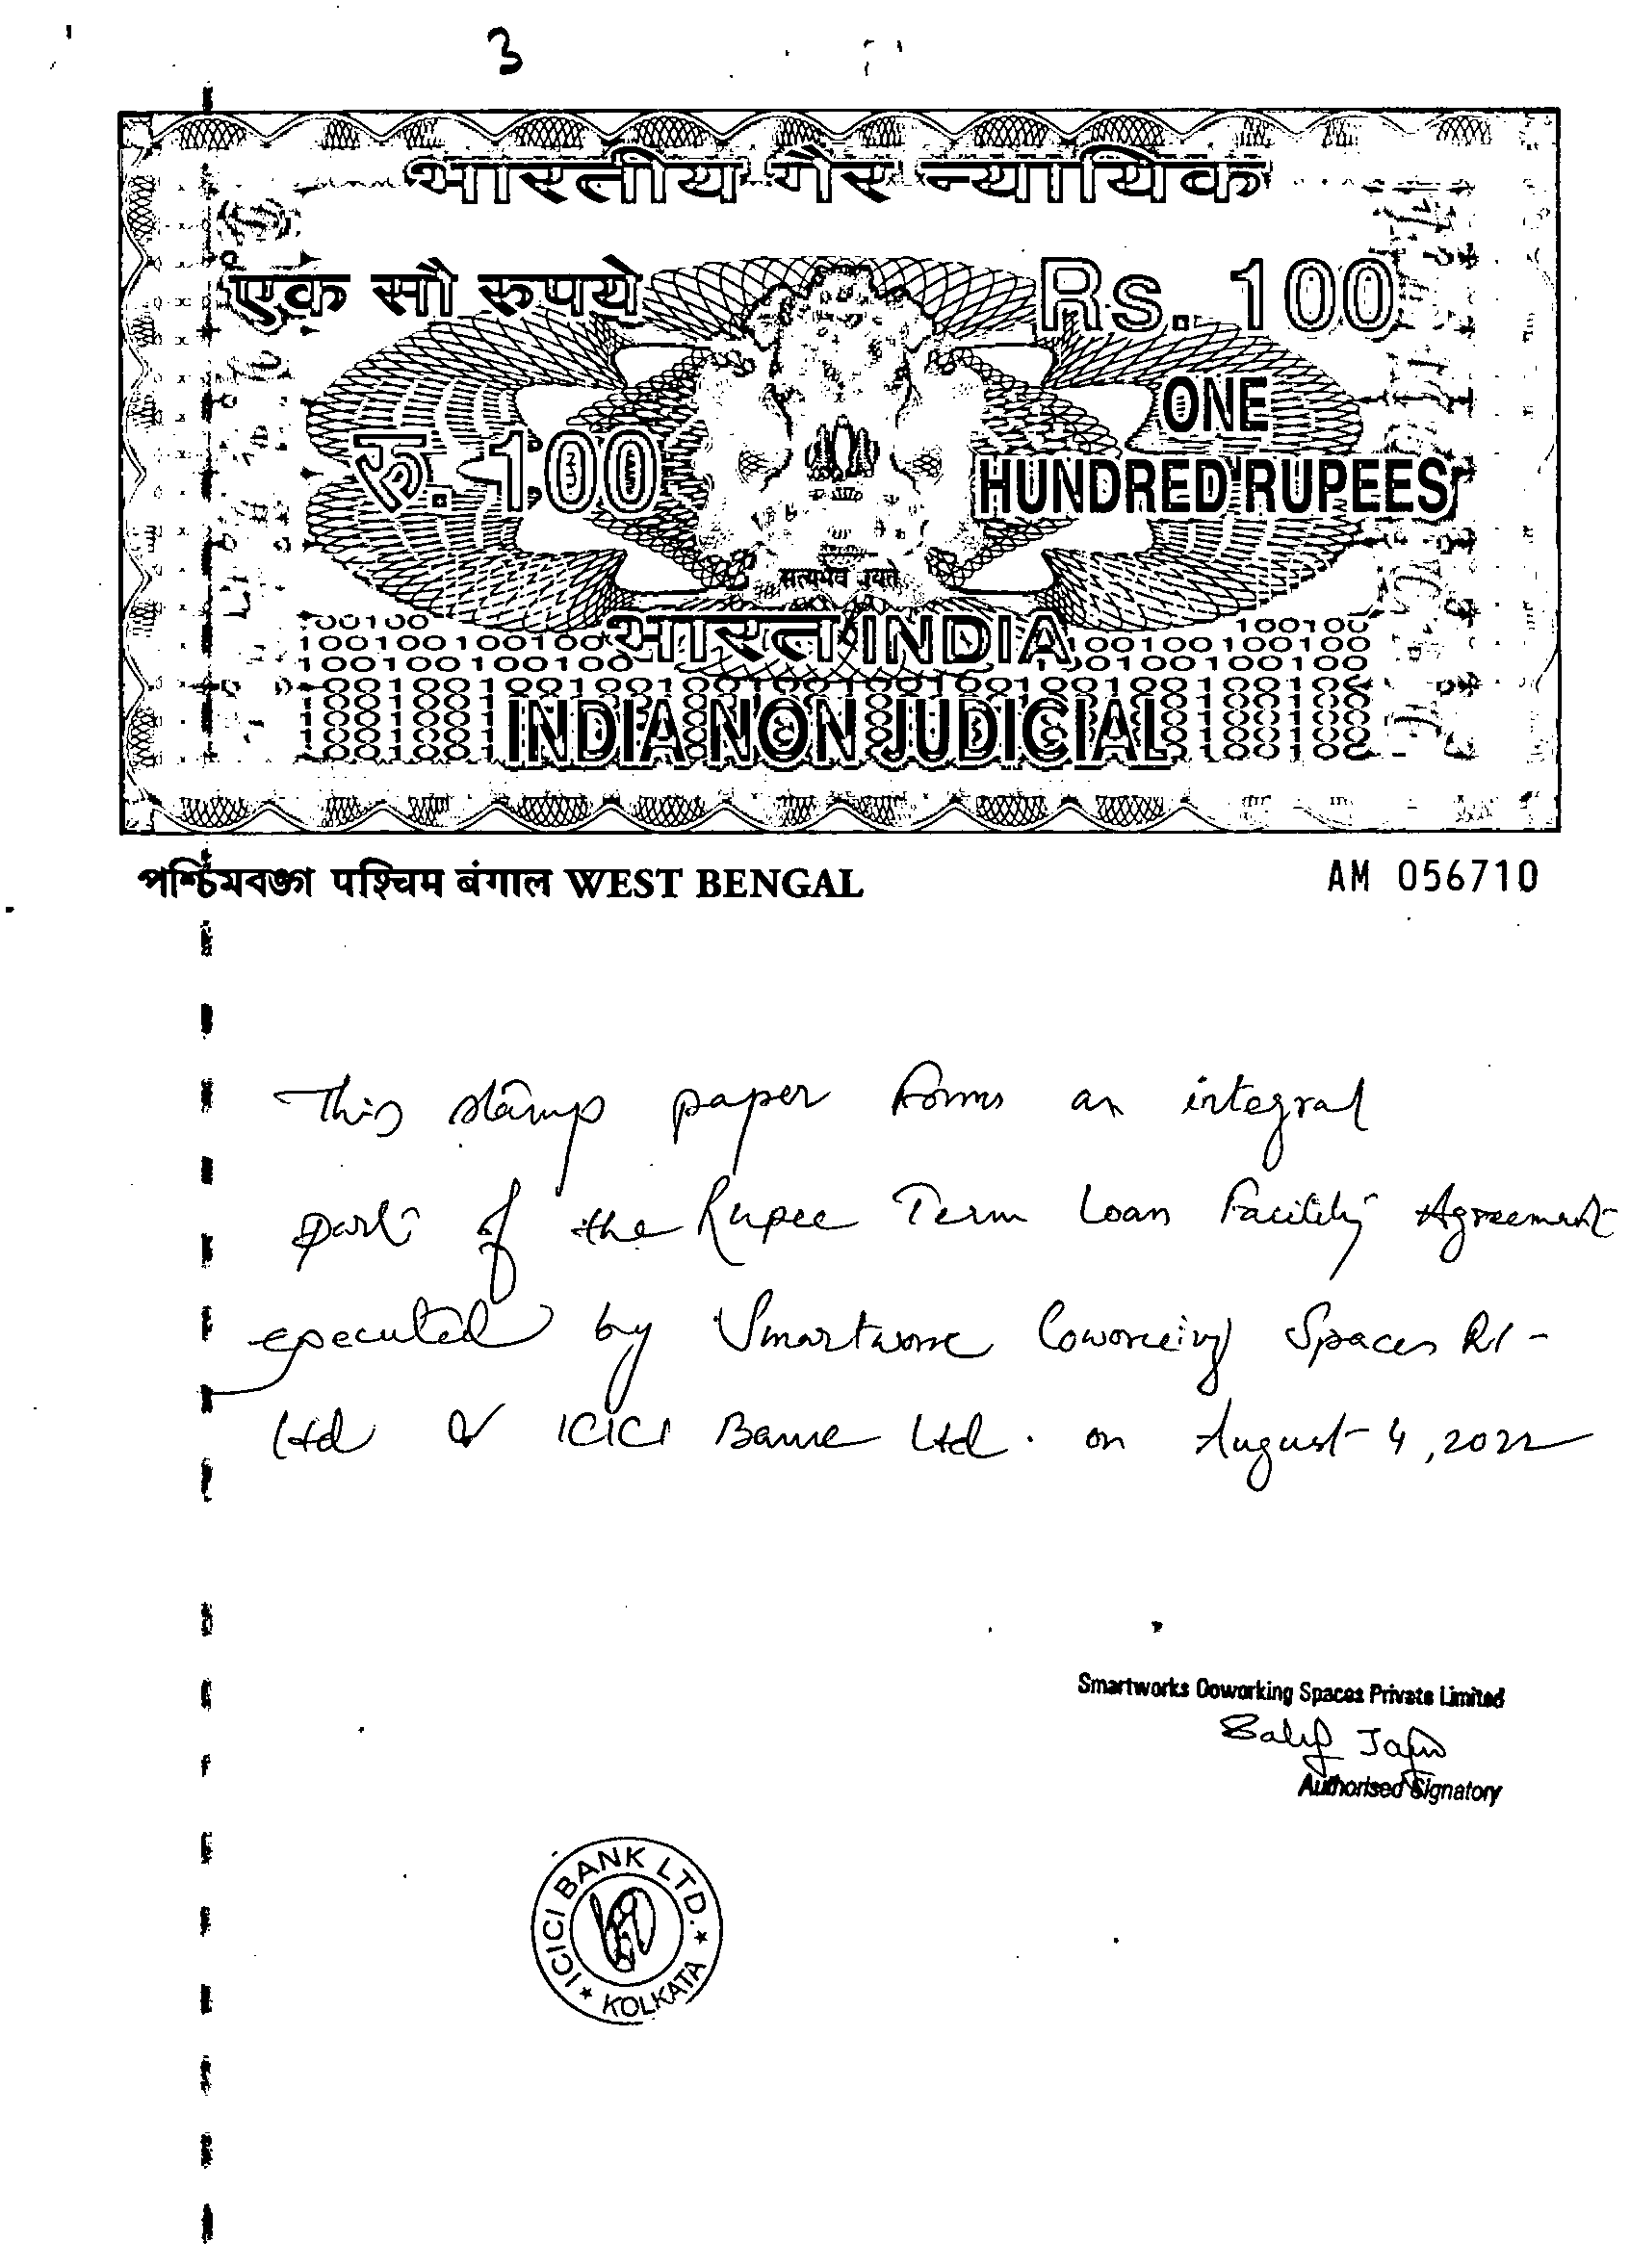 3
भारतीय गैर न्यायिक
एक सौ रुपये
Rs. 100
रु. 100
ONE
HUNDRED RUPEES
सत्यमेव जयते
भारत INDIA
INDIA NON JUDICIAL
পশ্চিমবঙ্গ पश्चिम बंगाल WEST BENGAL
AM 056710
This stamp paper forms an integral
part of the Rupee Term Loan Facility Agreement
executed by Smartwork Coworking Spaces Pvt
Ltd & ICICI Bank Ltd. on August 4, 2022
Smartworks Coworking Spaces Private Limited
Authorised Signatory
ICICI BANK LTD. ★ KOLKATA ★